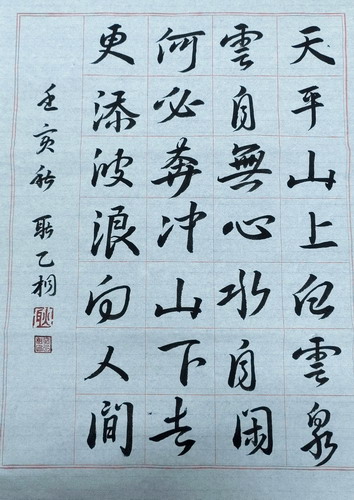 天平山上白雲泉
雲自無心水自閑
何必奔冲山下去
更添波浪向人間
壬亥秋 耿乙桐
耿